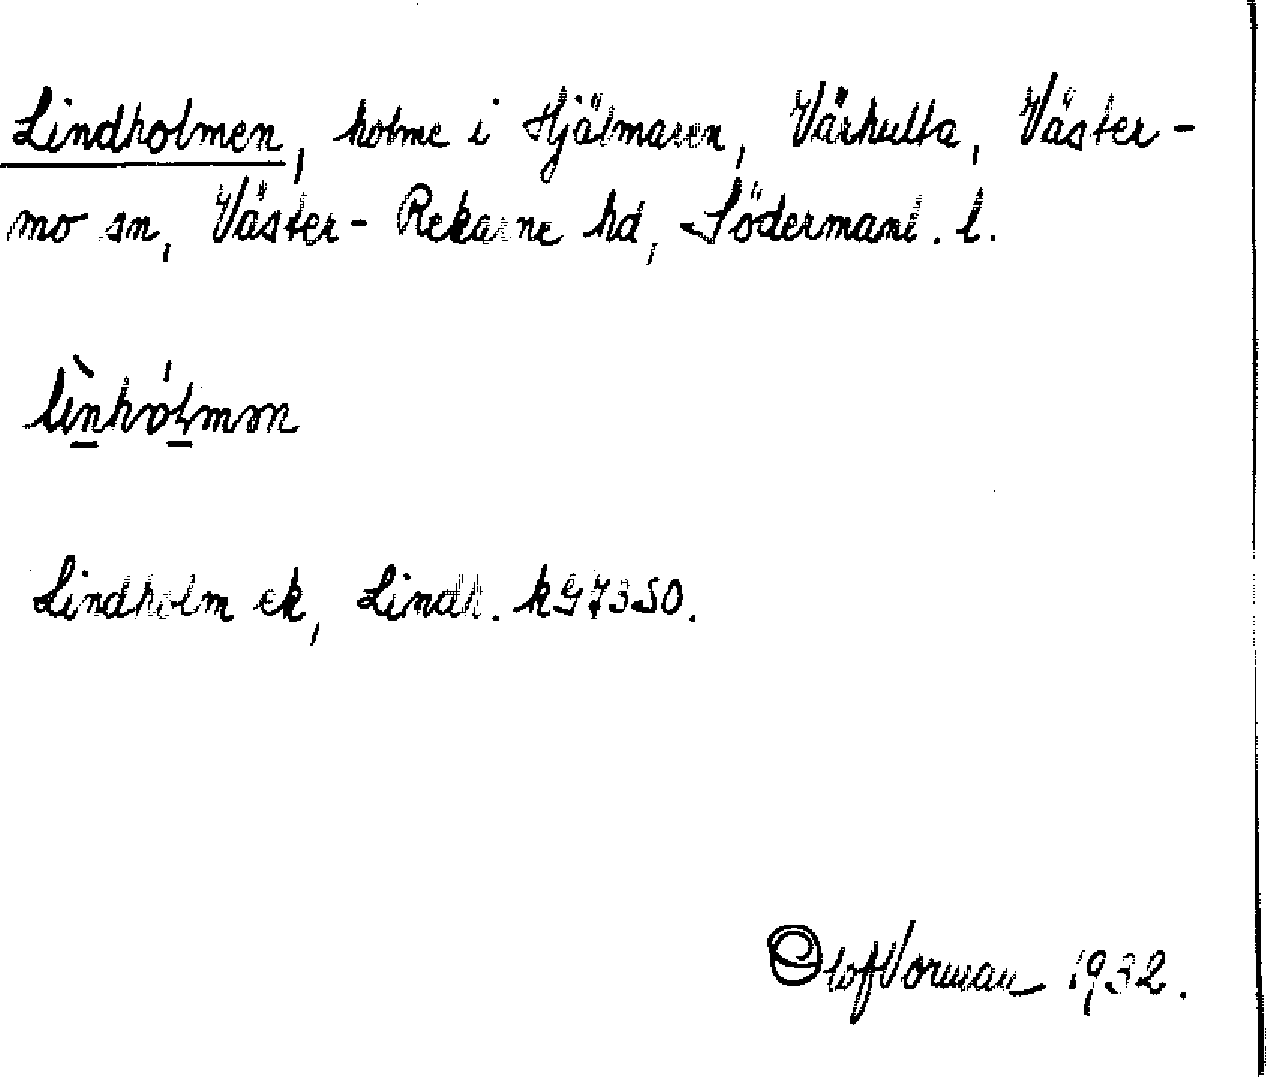 Lindholmen, holme i Hjälmaren, Vårhulta, Väster-
mo sn, Väster-Rekarne hd, Södermanl. l.
Lindholm ek, Lindh. kG7350.
Olof Vorman 1932.